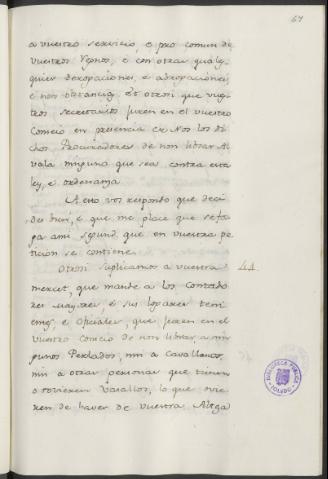 67
a vuestro servicio, e pro comun de
vuestros Regnos, e con otras quales-
quier derogaciones, e abrogaciones,
e non obstancias. Et otrosi que vues-
tros secretarios juren en el vuestro
Consejo en presencia de Nos los di-
chos Procuradores de non librar Al-
vala ninguno que sea contra esta
ley, e ordenanza
A esto vos respondo que deci-
des bien, e que me place que se fa-
ga asi segund que en vuestra pe-
ticion se contiene.
Otrosi suplicamos a vuestra 44
merced, que mande a los Contado-
res mayores, e sus logares teni-
entes, e Oficiales, que juren en el
vuestro Consejo de non librar a nin-
gunos Perlados, nin a Cavalleros,
nin a otras personas que tienen
o tovieren Vasallos, lo que ovie-
ren de haver de vuestra Alteza
BIBLIOTECA PUBLICA
TOLEDO